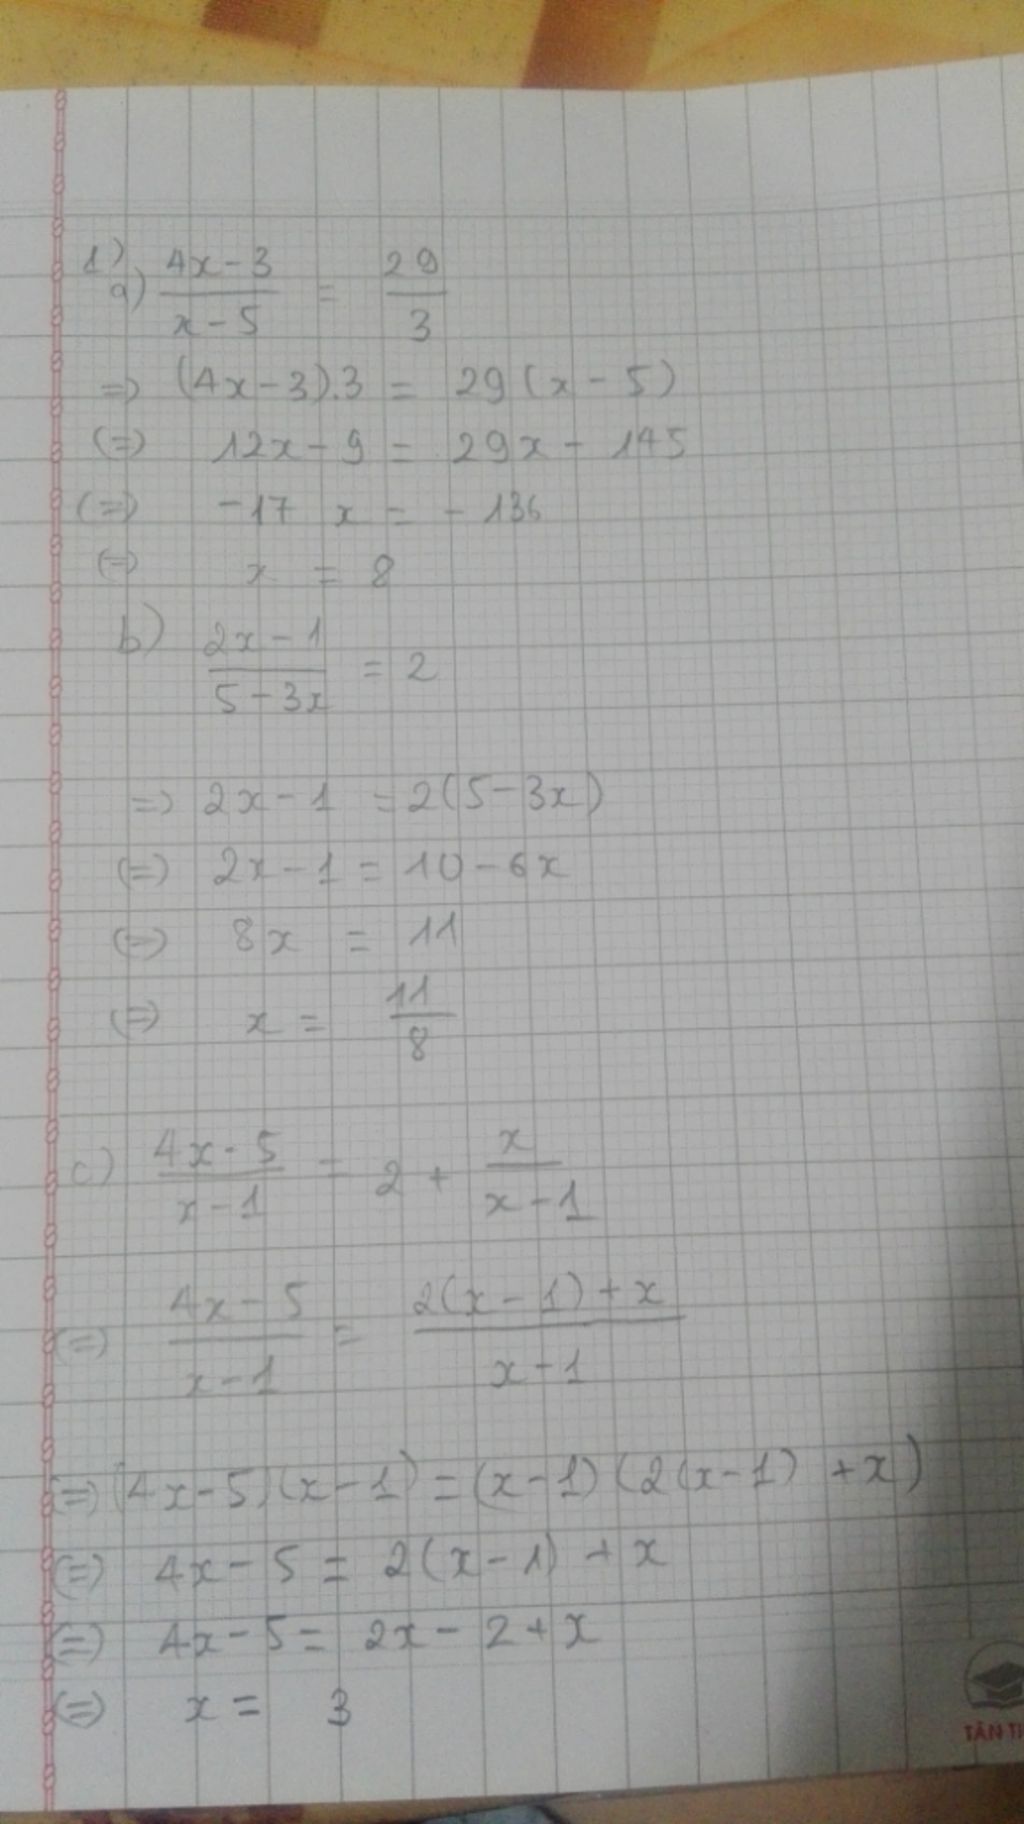 1)
a) (4x-3)/(x-5) = 29/3
=> (4x-3).3 = 29(x-5)
(=) 12x-9 = 29x-145
(=) -17 x = -136
(=) x = 8
b) (2x-1)/(5-3x) = 2
=> 2x-1 = 2(5-3x)
(=) 2x-1 = 10-6x
(=) 8x = 11
(=) x = 11/8
c) (4x-5)/(x-1) = 2 + x/(x-1)
(=) (4x-5)/(x-1) = (2(x-1)+x)/(x-1)
(=) (4x-5)(x-1) = (x-1)(2(x-1)+x)
(=) 4x-5 = 2(x-1)+x
(=) 4x-5 = 2x-2+x
(=) x = 3
TÂN